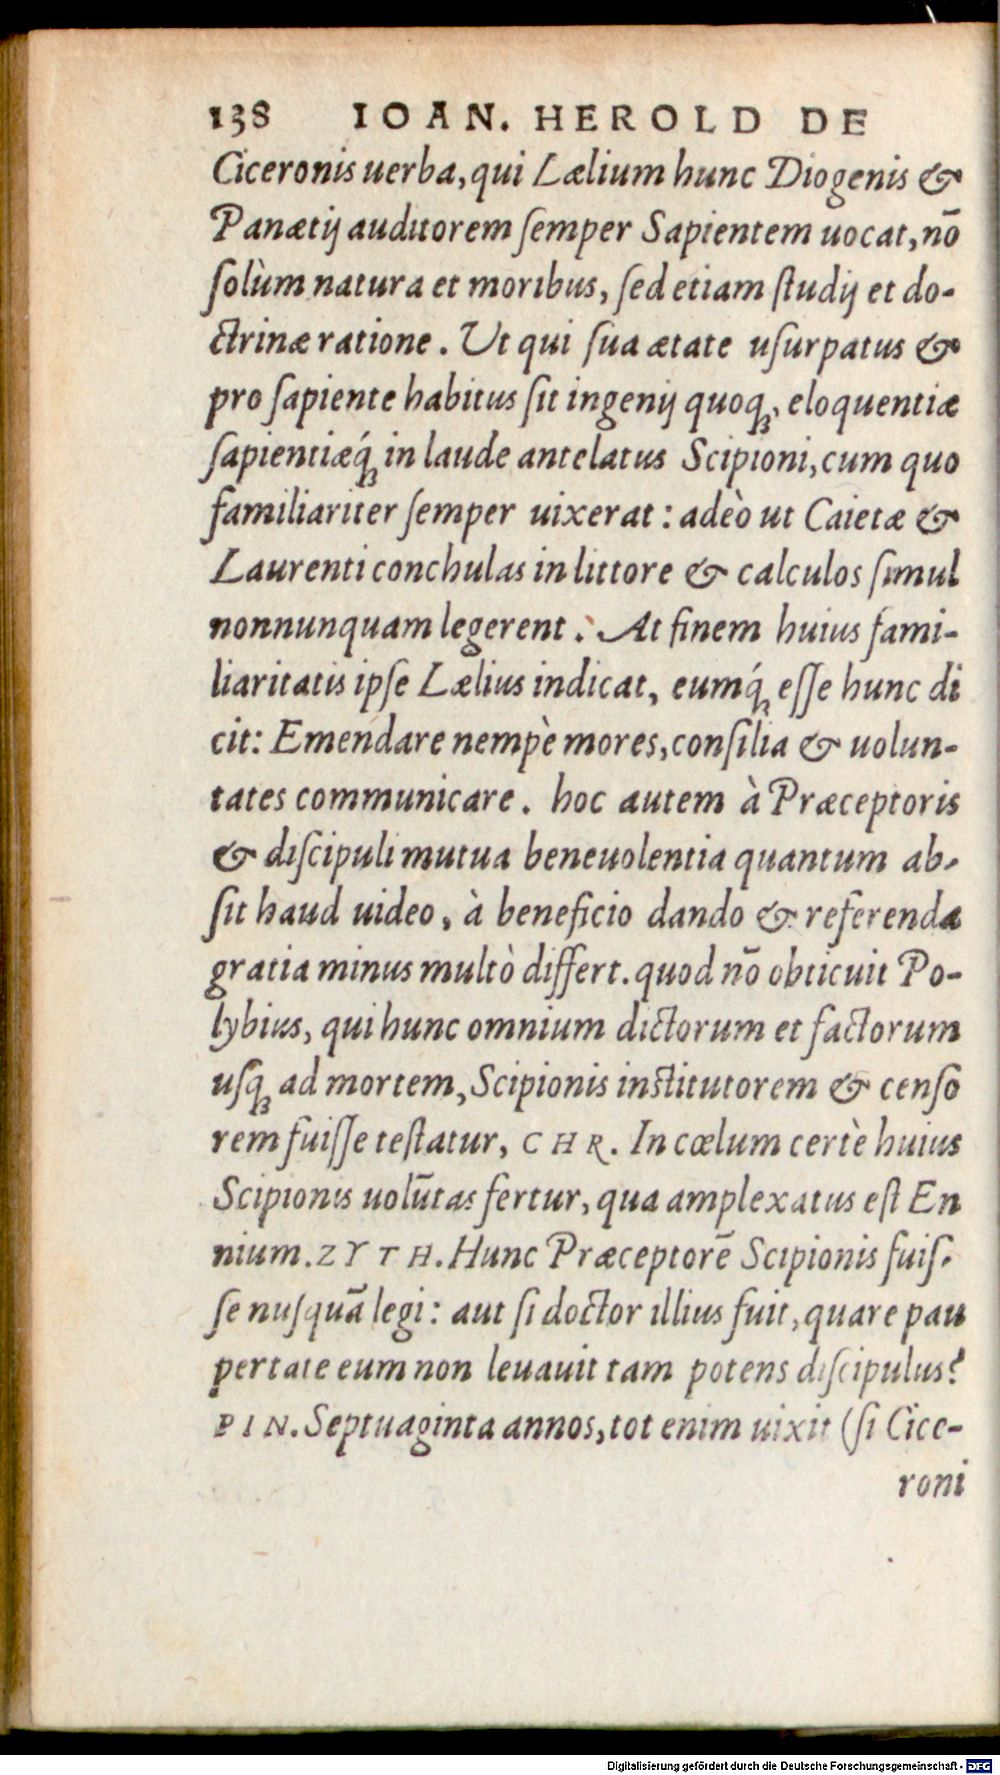 138 IOAN. HEROLD DE
Ciceronis uerba, qui Lælium hunc Diogenis &
Panætij auditorem ſemper Sapientem uocat, nō
ſolùm natura et moribus, ſed etiam ſtudij et do-
ctrinæ ratione. Ut qui ſua ætate uſurpatus &
pro ſapiente habitus ſit ingenij quoq́ꝫ, eloquentiæ
ſapientiæq́ꝫ in laude antelatus Scipioni, cum quo
familiariter ſemper uixerat: adeò ut Caietæ &
Laurenti conchulas in littore & calculos ſimul
nonnunquam legerent. At finem huius fami-
liaritatis ipſe Lælius indicat, eumq́ꝫ eſſe hunc di
cit: Emendare nempè mores, conſilia & uolun-
tates communicare. hoc autem à Præceptoris
& diſcipuli mutua beneuolentia quantum ab-
ſit haud uideo, à beneficio dando & referenda
gratia minus multò differt. quod nō obticuit Po-
lybius, qui hunc omnium dictorum et factorum
uſqꝫ ad mortem, Scipionis inſtitutorem & cenſo
rem fuiſſe teſtatur, CHR. In cœlum certè huius
Scipionis uolūtas fertur, qua amplexatus eſt En
nium. ZYTH. Hunc Præceptorē Scipionis fuiſ-
ſe nuſquā legi: aut ſi doctor illius fuit, quare pau
pertate eum non leuauit tam potens diſcipulus?
PIN. Septuaginta annos, tot enim uixit (ſi Cice-
roni
Digitalisierung gefördert durch die Deutsche Forschungsgemeinschaft - DFG